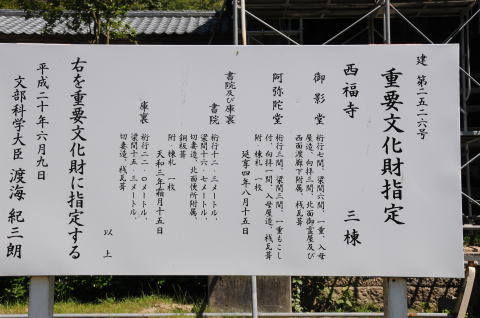 建第二五二六号
重要文化財指定
西福寺 三棟
御影堂 桁行七間、梁間六間、一重、入母
屋造、向拝三間、北面御霊屋及び
西面渡廊下附属、桟瓦葺
阿弥陀堂 桁行三間、梁間三間、一重もこし
付、向拝一間、入母屋造、桟瓦葺
附・棟札 一枚
延享四年八月十五日
書院及び庫裏
書院 桁行十八・三メートル、
梁間十六・七メートル、
切妻造、北面便所附属、
銅板葺
附・棟札 一枚
天和三年霜月十五日
庫裏 桁行二二・〇メートル、
梁間十五・三メートル、
切妻造、桟瓦葺
以上
右を重要文化財に指定する
平成二十年六月九日
文部科学大臣 渡海紀三朗